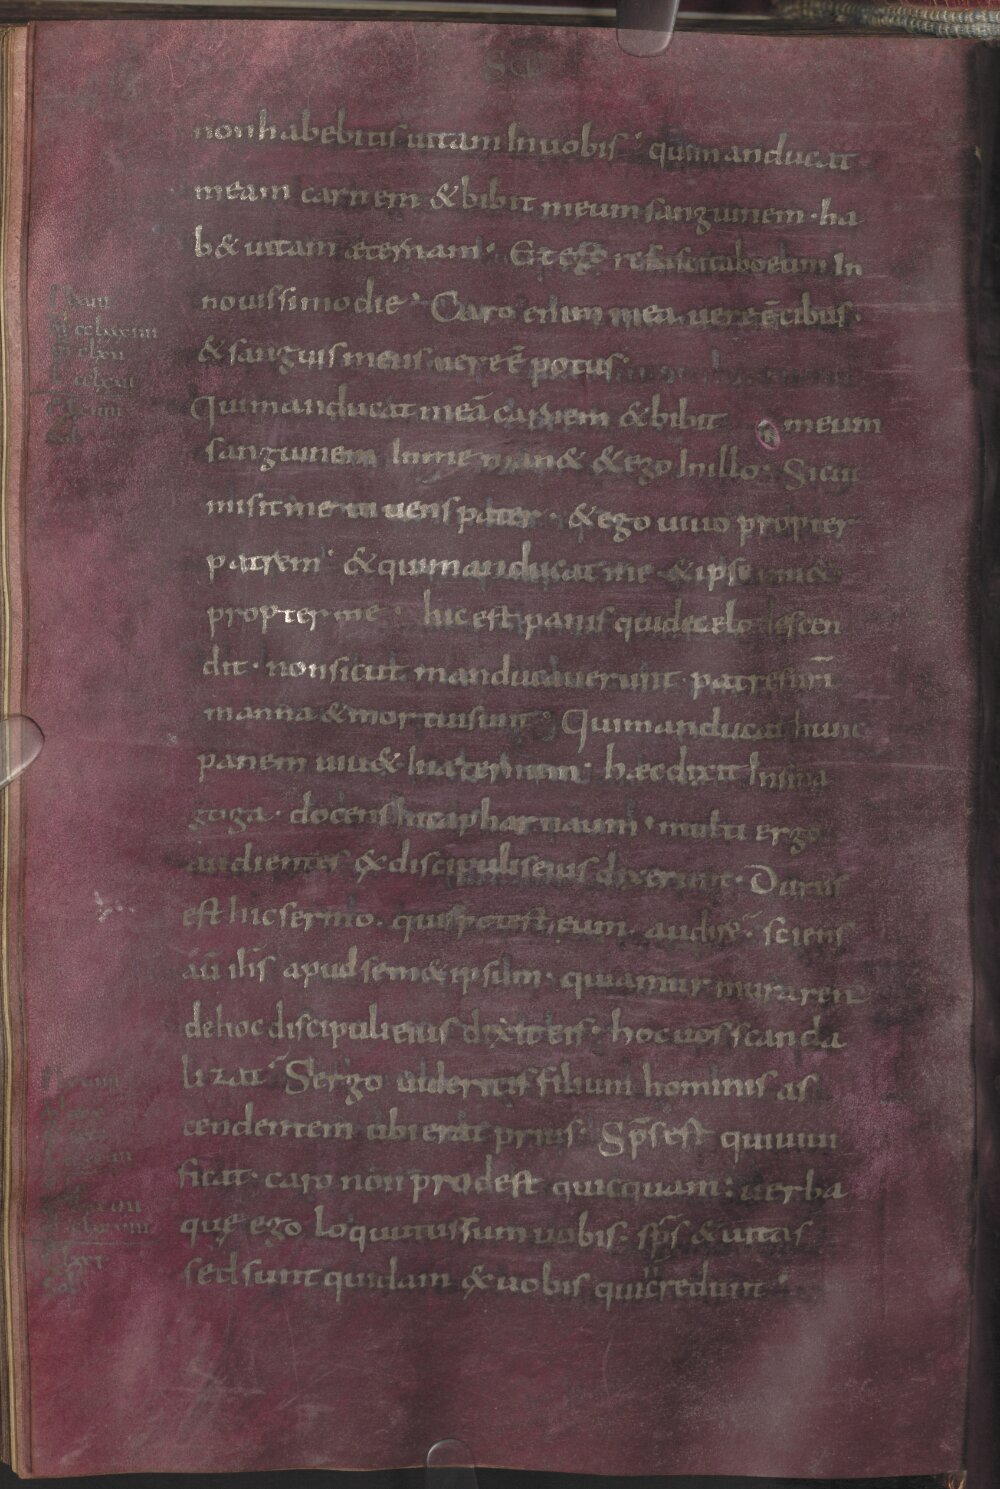 SCD
non habebitis uitam In uobis · qui manducat
meam carnem & bibit meum sanguinem · ha
b& uitam æternam · Et ego resuscitabo eum In
nouissimo die · Caro enim mea uere ē cibus ·
& sanguis meus uere ē potus ·
Qui manducat meā carnem & bibit meum
sanguinem In me man& & ego In illo · Sicut
misit me uiuens pater · & ego uiuo propter
patrem · & qui manducat me & ipse uiu&
propter me · hic est panis qui de celo descen
dit · non sicut manducauerunt patres uri̅
manna & mortui sunt · Qui manducat hunc
panem uiu& In æternum · hæc dixit In sina
goga · docens In capharnaum · multi ergo
audientes ex discipulis eius dixerunt · Durus
est hic sermo · quis potest eum audire · sciens
aū ihs apud semet ipsum · quia murmurarent
de hoc discipuli eius dixit eis · hoc uos scanda
lizat · Si ergo uideritis filium hominis as
cendentem ubi erat prius · Sp̄s est qui uiui
ficat · caro non prodest quicquam : uerba
quę ego loquutus sum uobis · sp̄s & uita s̄
sed sunt quidam ex uobis qui n̄ credunt ·